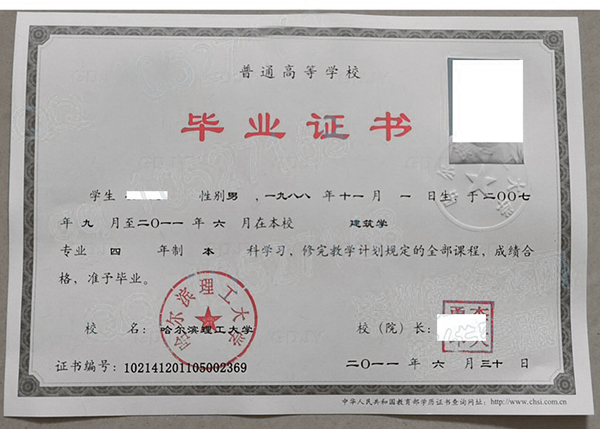 普通高等学校
毕业证书
学生 性别男,一九八八年十一月一日生,于二〇〇七
年九月至二〇一一年六月在本校 建筑学
专业四年制本科学习,修完教学计划规定的全部课程,成绩合
格,准予毕业。
哈尔滨理工大学
校名:哈尔滨理工大学 校(院)长:
证书编号:102141201105002369 二〇一一年六月三十日
中华人民共和国教育部学历证书查询网址:http://www.chsi.com.cn